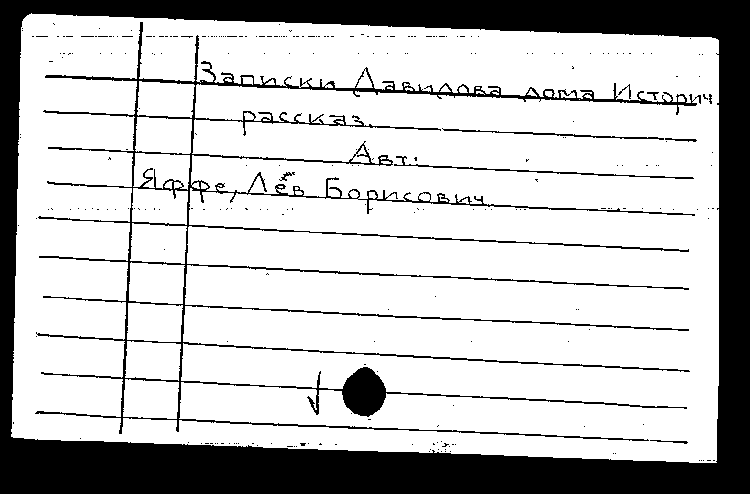 Записки Давидова дома Историч.
рассказ.
Авт:
Яффе, Лев Борисович